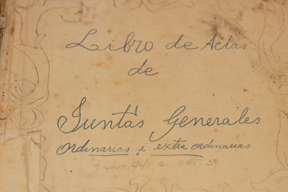 Libro de Actas
de
Juntas Generales
ordinarias i extra ordinarias